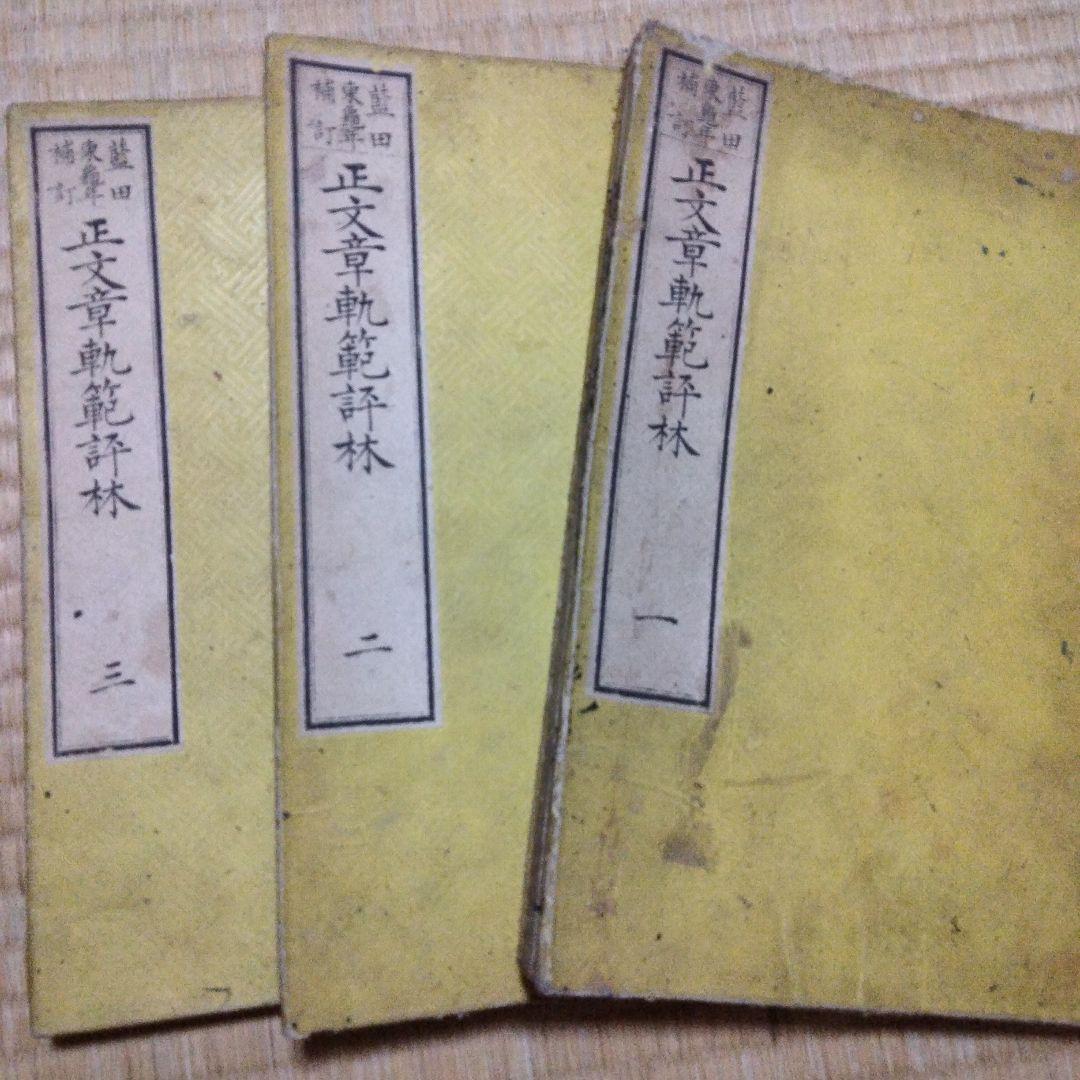 藍田
東龜年
補訂
正文章軌範評林
一
藍田
東龜年
補訂
正文章軌範評林
二
藍田
東龜年
補訂
正文章軌範評林
三